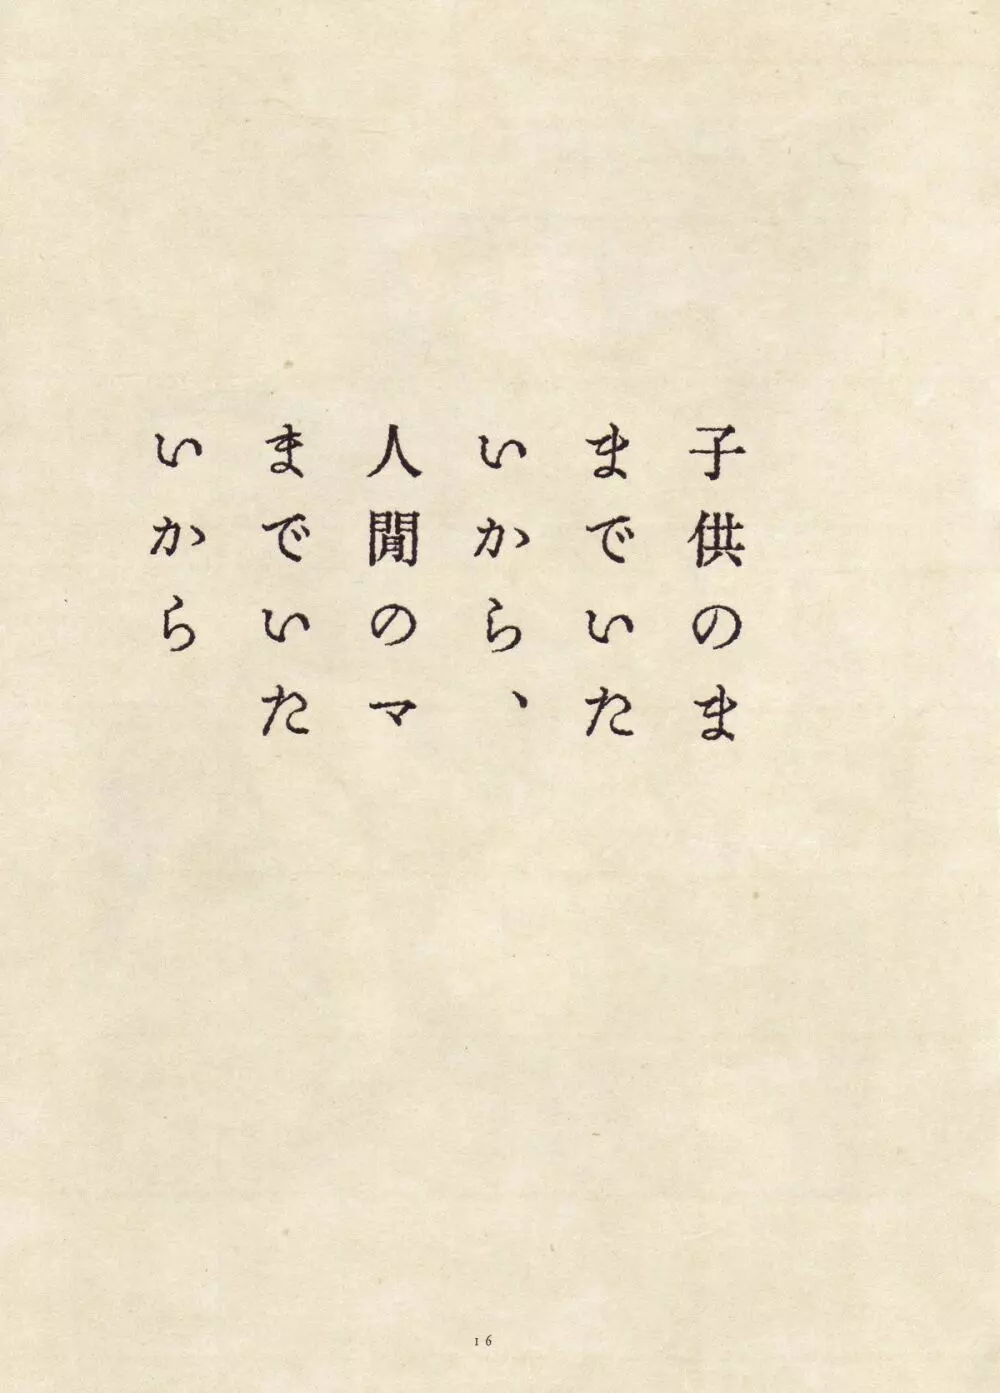 子供のま
までいた
いから、
人間のマ
までいた
いから
16